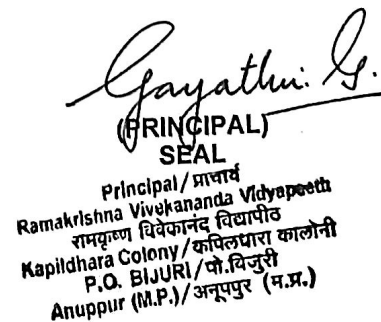 Gayathri. G.
(PRINCIPAL)
SEAL
Principal/प्राचार्य
Ramakrishna Vivekananda Vidyapeeth
रामकृष्ण विवेकानंद विद्यापीठ
Kapildhara Colony/कपिलधारा कालोनी
P.O. BIJURI/पो.बिजुरी
Anuppur (M.P.)/अनूपपुर (म.प्र.)